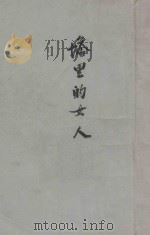 塔里的女人